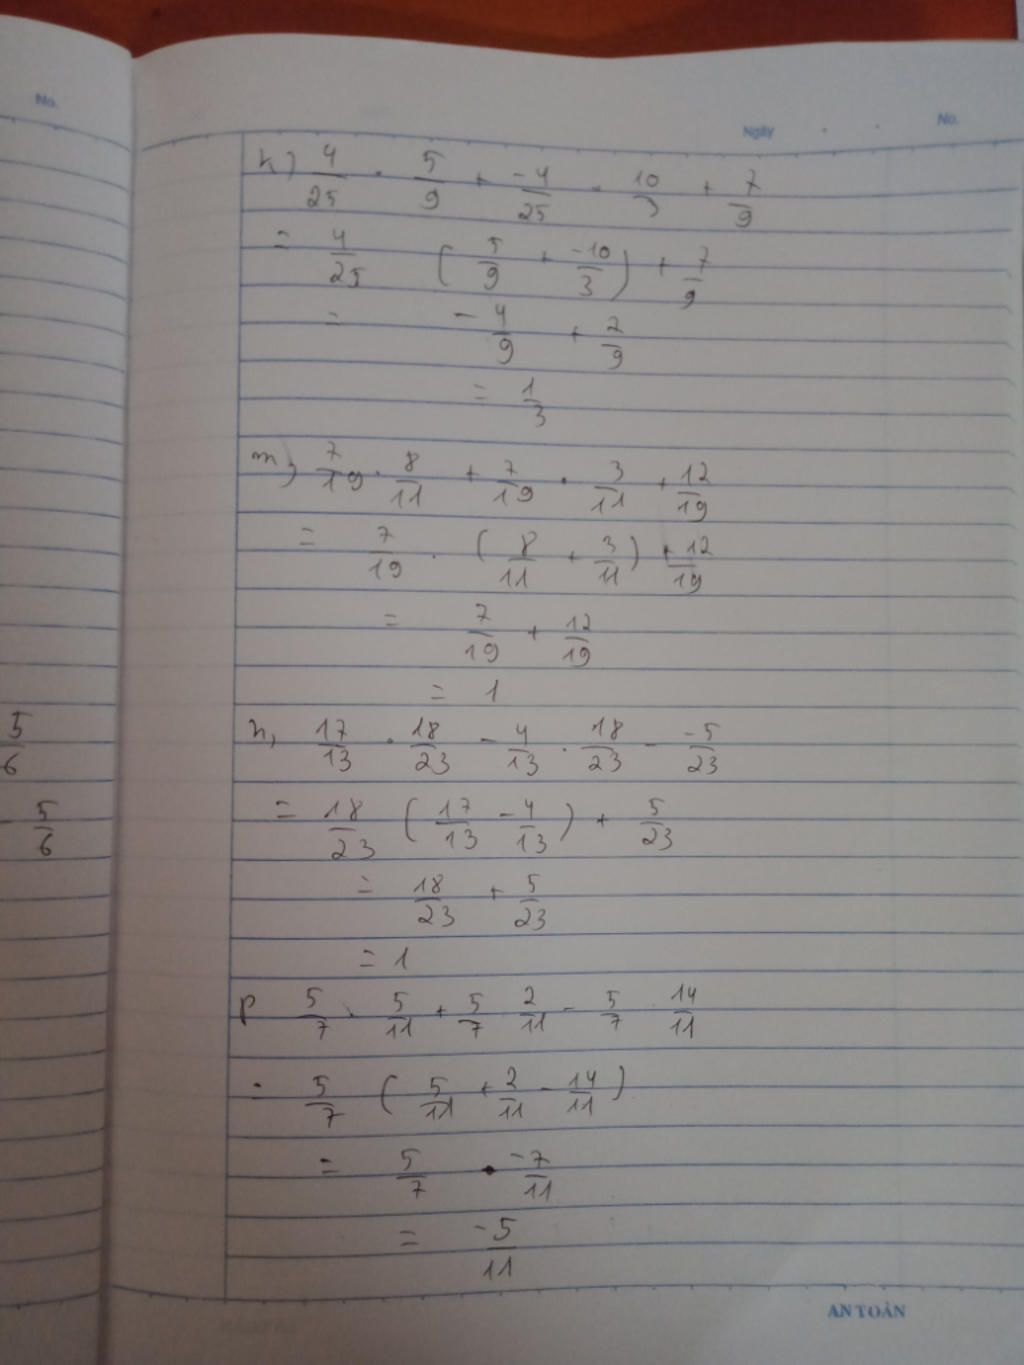 No.
Ngày No.
h) 4/25 . 5/9 + -4/25 . 10/3 + 7/9
= 4/25 ( 5/9 + -10/3 ) + 7/9
= -4/9 + 7/9
= 1/3
m) 7/19 . 8/11 + 7/19 . 3/11 + 12/19
= 7/19 . ( 8/11 + 3/11 ) + 12/19
= 7/19 + 12/19
= 1
n, 17/13 . 18/23 - 4/13 . 18/23 - -5/23
= 18/23 ( 17/13 - 4/13 ) + 5/23
= 18/23 + 5/23
= 1
p 5/7 . 5/11 + 5/7 2/11 - 5/7 14/11
= 5/7 ( 5/11 + 2/11 - 14/11 )
= 5/7 . -7/11
= -5/11
5/6
5/6
AN TOÀN